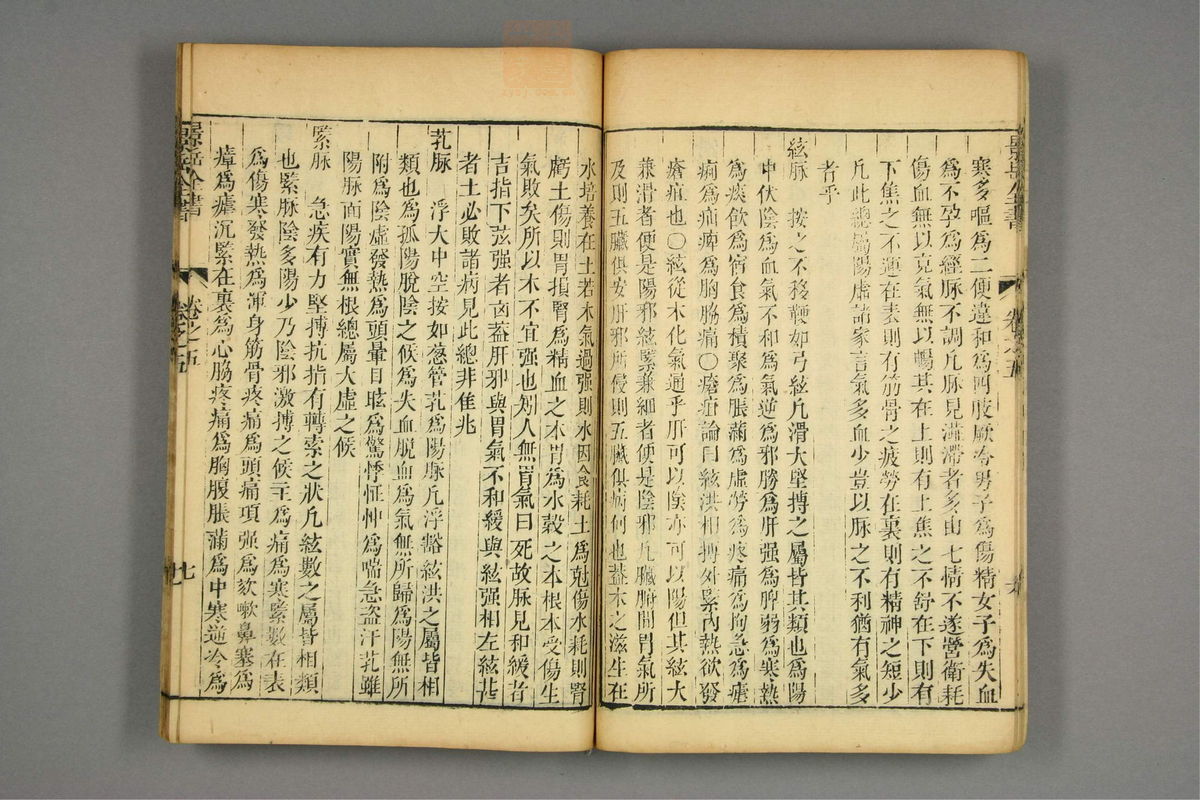 寒多嘔為二便違和為四肢厥冷男子為傷精女子為失血
為不孕為經脉不調凢脉見濇滯者多由七情不遂營衛耗
傷血無以充氣無以暢其在上則有上焦之不舒在下則有
下焦之不運在表則有筋骨之疲勞在裏則有精神之短少
凢此總屬陽虛諸家言氣多血少豈以脉之不利猶有氣多
者乎
絃脉 按之不移鞕如弓絃凢滑大堅搏之屬皆其類也為陽
中伏陰為血氣不和為氣逆為邪勝為肝强為脾弱為寒熱
為痰飲為宿食為積聚為脹滿為虛勞為疼痛為拘急為瘧
痢為瘡痺為胸脇痛○瘡疽論曰絃洪相搏外緊內熱欲發
瘡疽也○絃從木化氣通乎肝可以陰亦可以陽但其絃大
兼滑者便是陽邪絃緊兼細者便是陰邪凢臟腑間胃氣所
及則五臟俱安肝邪所侵則五臟俱病何也葢木之滋生在
水培養在土若木氣過强則水因食耗土為尅傷水耗則腎
虧土傷則胃損腎為精血之本胃為水穀之本根本受傷生
氣敗矣所以木不宜强也矧人無胃氣曰死故脉見和緩者
吉指下弦强者凶葢肝邪與胃氣不和緩與絃强相左絃甚
者土必敗諸病見此總非佳兆
芤脉 浮大中空按如葱管芤為陽脉凢浮豁絃洪之屬皆相
類也為孤陽脫陰之候為失血脫血為氣無所歸為陽無所
附為陰虛發熱為頭暈目眩為驚悸怔忡為喘急盜汗芤雖
陽脉而陽實無根總屬大虛之候
緊脉 急疾有力堅搏抗指有轉索之狀凢絃數之屬皆相類
也緊脉陰多陽少乃陰邪激搏之候主為痛為寒緊數在表
為傷寒發熱為渾身筋骨疼痛為頭痛項强為欬嗽鼻塞為
瘴為瘧沉緊在裏為心脇疼痛為胸腹脹滿為中寒逆冷為
景岳全書 卷之五